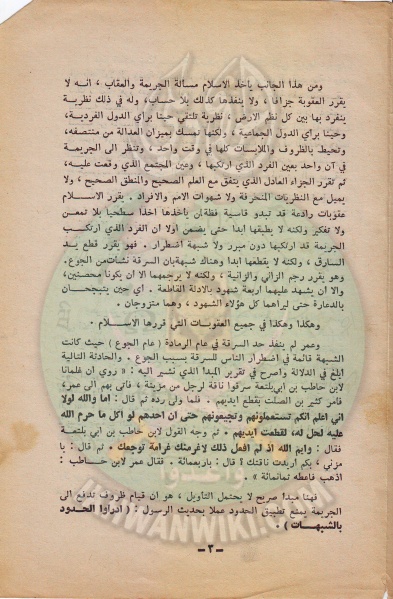 ومن هذا الجانب يأخذ الاسلام مسألة الجريمة والعقاب ، انه لا
يقرر العقوبة جزافا ، ولا ينفذها كذلك بلا حساب ، وله في ذلك نظرية
ينفرد بها بين كل نظم الارض ، نظرية تلتقي حينا برأي الدول الفردية،
وحينا برأي الدول الجماعية ، ولكنها تمسك بميزان العدالة من منتصفه،
وتحيط بالظروف والملابسات كلها في وقت واحد ، وتنظر الى الجريمة
في آن واحد بعين الفرد الذي ارتكبها ، وعين المجتمع الذي وقعت عليه،
ثم تقرر الجزاء العادل الذي يتفق مع العلم الصحيح والمنطق الصحيح ، ولا
يميل مع النظريات المنحرفة ولا شهوات الامم والافراد . يقرر الاسلام
عقوبات رادعة قد تبدو قاسية فظة لمن يأخذها اخذا سطحيا بلا تمعن
ولا تفكير ولكنه لا يطبقها ابدا حتى يضمن اولا ان الفرد الذي ارتكب
الجريمة قد ارتكبها دون مبرر ولا شبهة اضطرار . فهو يقرر قطع يد
السارق ، ولكنه لا يقطعها ابدا وهناك شبهة بان السرقة نشأت من الجوع.
وهو يقرر رجم الزاني والزانية ، ولكنه لا يرجمهما الا ان يكونا محصنين،
والا ان يشهد عليهما اربعة شهود بالادلة القاطعة . اي حين يتبجحان
بالدعارة حتى ليراهما كل هؤلاء الشهود ، وهما متزوجان .
وهكذا وهكذا في جميع العقوبات التي قررها الاسلام .
وعمر لم ينفذ حد السرقة في عام الرمادة ( عام الجوع ) حيث كانت
الشبهة قائمة في اضطرار الناس للسرقة بسبب الجوع . والحادثة التالية
ابلغ في الدلالة واصرح في تقرير المبدا الذي نشير اليه : « روي ان غلمانا
لابن حاطب بن ابي بلتعة سرقوا ناقة لرجل من مزينة ، فأتى بهم الى عمر،
فامر كثير بن الصلت بقطع ايديهم . فلما ولى رده ثم قال : اما والله لولا
اني اعلم انكم تستعملونهم وتجيعونهم حتى ان احدهم لو اكل ما حرم الله
عليه لحل له، لقطعت ايديهم . ثم وجه القول لابن حاطب بن ابي بلتعة
فقال : وايم الله اذ لم افعل ذلك لاغرمنك غرامة توجعك . ثم قال : يا
مزني ، بكم اريدت ناقتك ؟ قال : باربعمائة . فقال عمر لابن حاطب :
اذهب فاعطه ثمانمائة » .
فهنا مبدا صريح لا يحتمل التأويل ، هو ان قيام ظروف تدفع الى
الجريمة يمنع تطبيق الحدود عملا بحديث الرسول : ( ادراوا الحدود
بالشبهات ) .
– ٣ –
IKHWANWIKI.COM
وأعدوا